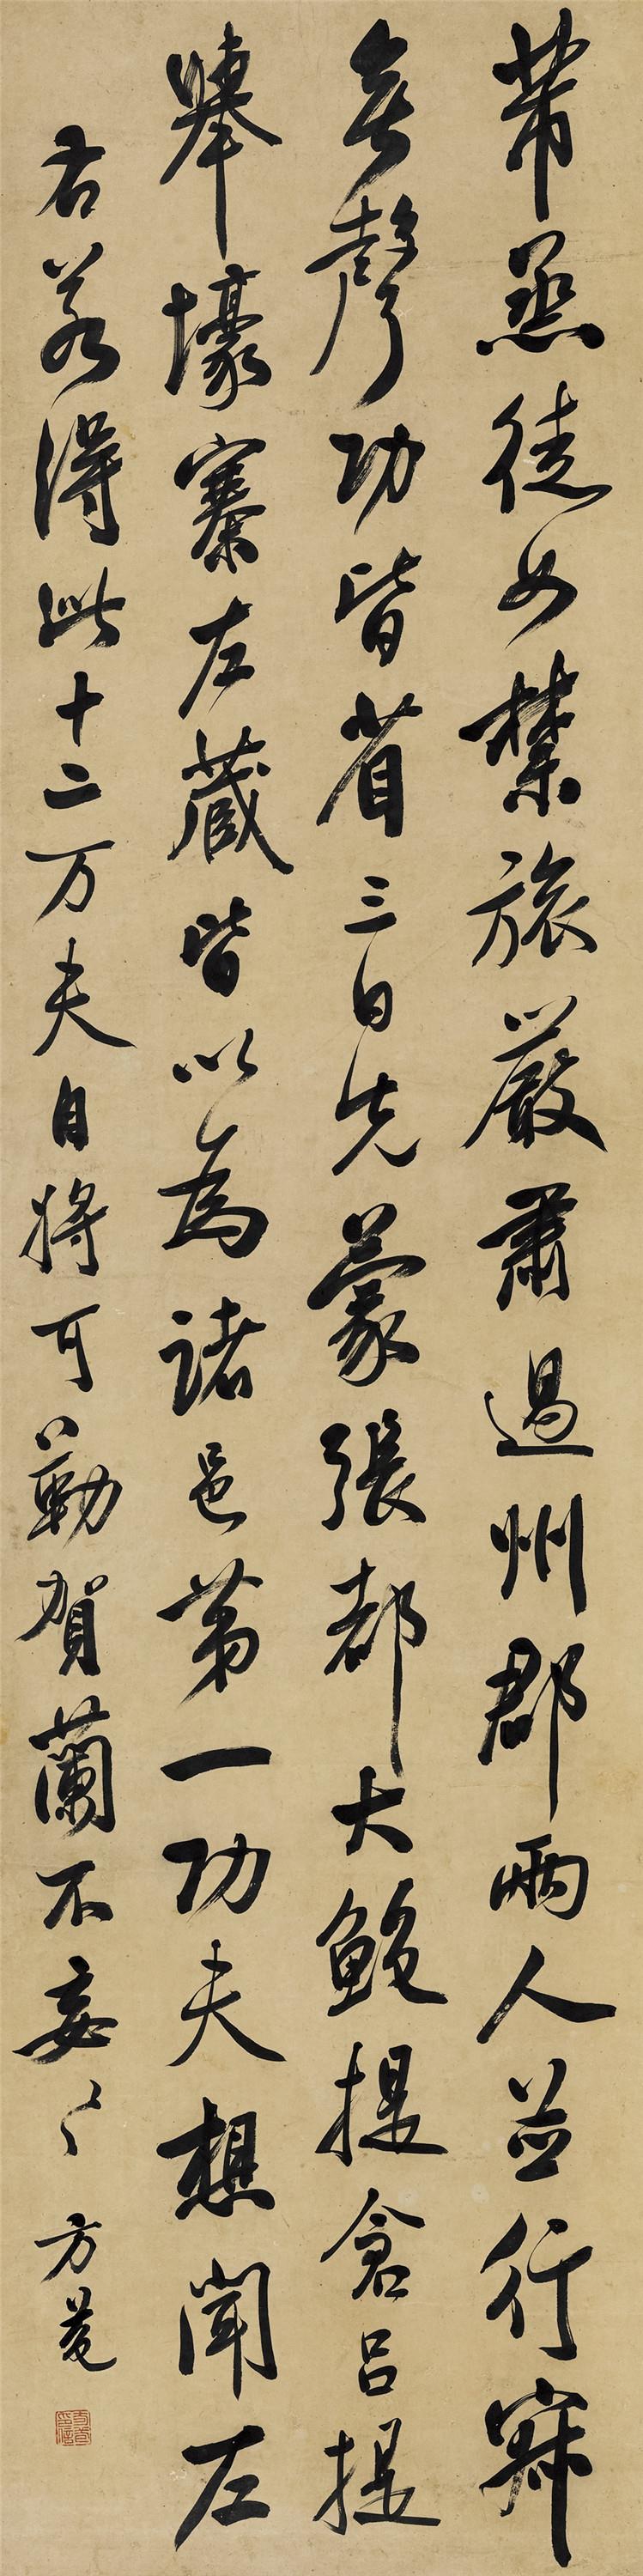 芾烝徒如禁旅嚴肅過州郡兩人並行寂
無聲功皆省三日先蒙張都大鮑提倉呂提
舉壕寨左藏皆以為諸邑第一功夫想聞左
右若得此十二万夫自將可勒賀蘭不妄〻
方菴